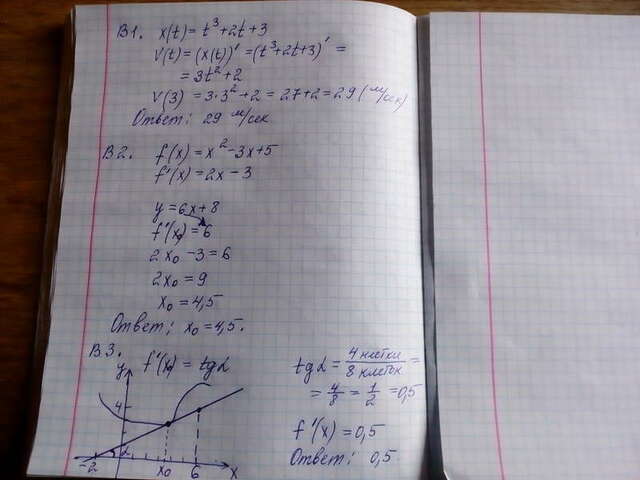 В1. x(t) = t³+2t+3
V(t) = (x(t))' = (t³+2t+3)' =
= 3t²+2
V(3) = 3·3²+2 = 27+2 = 29 (м/сек)
Ответ: 29 м/сек
В2. f(x) = x²-3x+5
f'(x) = 2x-3
y = 6x+8
f'(x₀) = 6
2x₀ -3 = 6
2x₀ = 9
x₀ = 4,5
Ответ: x₀ = 4,5.
В3.
f'(x₀) = tgα
y
4
α
-2
x₀
6
x
tgα = 4 клетки / 8 клеток =
= 4/8 = 1/2 = 0,5
f'(x) = 0,5
Ответ: 0,5.